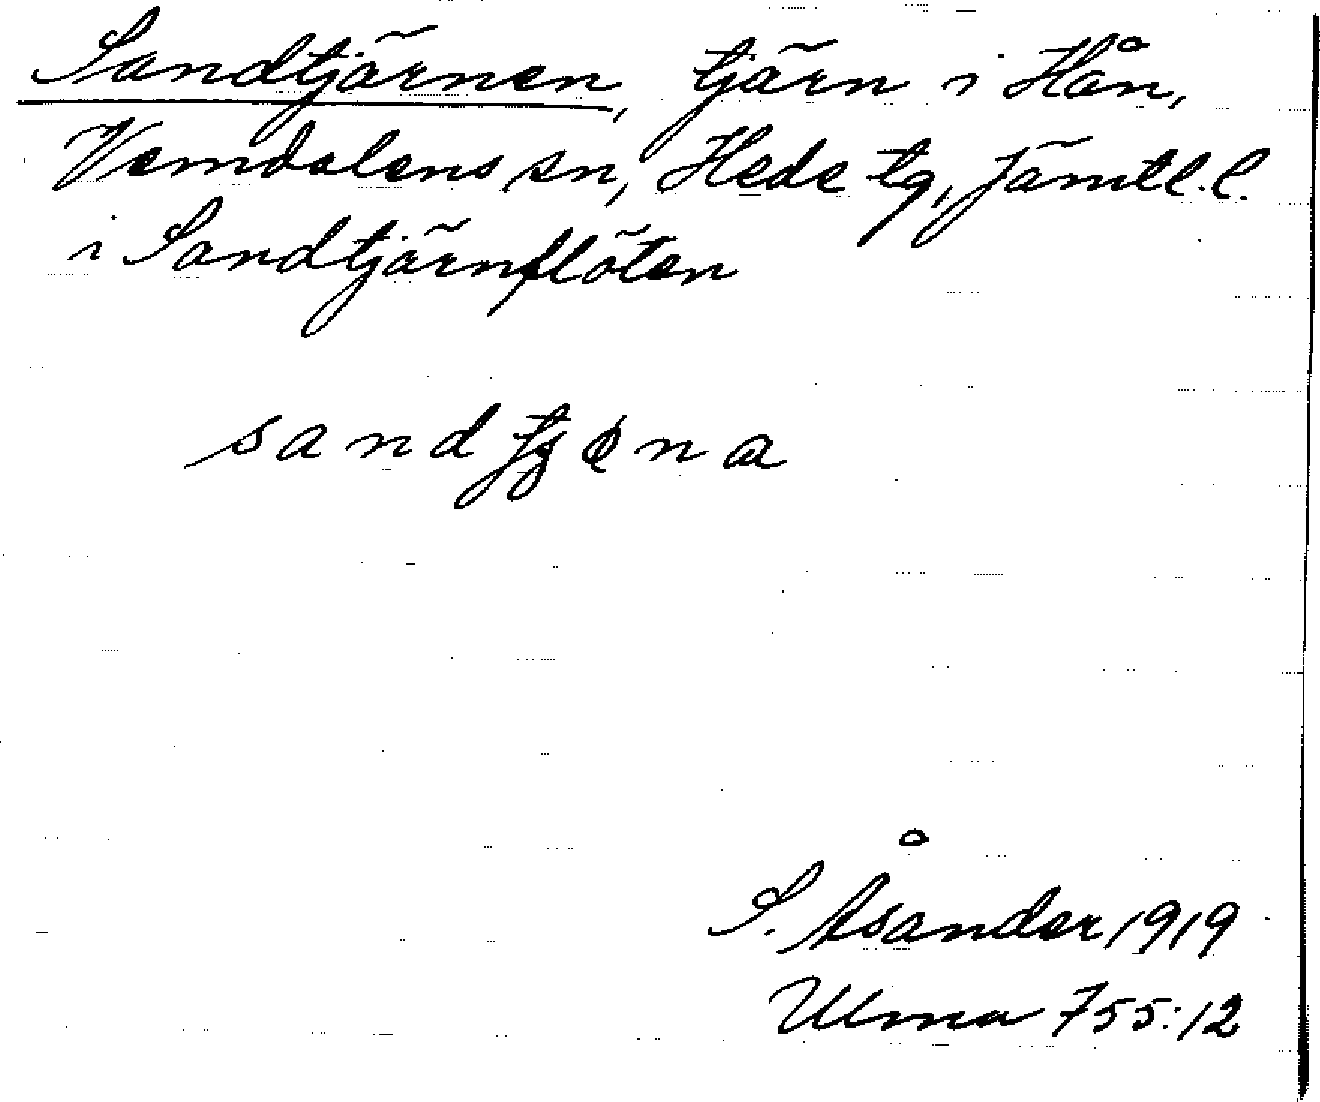 Sandtjärnen, tjärn i Hån,
Vemdalens sn, Hede tg, Jämtl. l.
i Sandtjärnflöten
S. Åsander 1919
Ulma 755:12